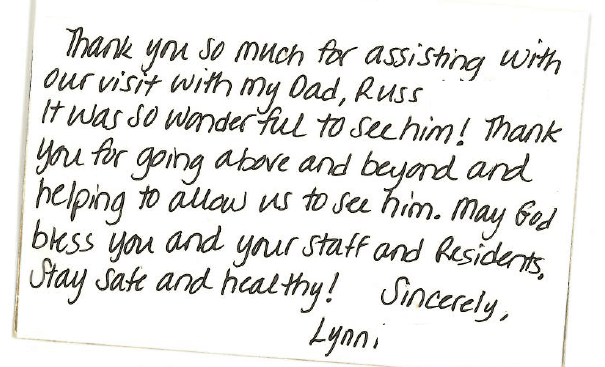 Thank you so much for assisting with
our visit with my Dad, Russ
It was so wonderful to see him! Thank
you for going above and beyond and
helping to allow us to see him. May God
bless you and your staff and Residents.
Stay safe and healthy! Sincerely,
Lynni